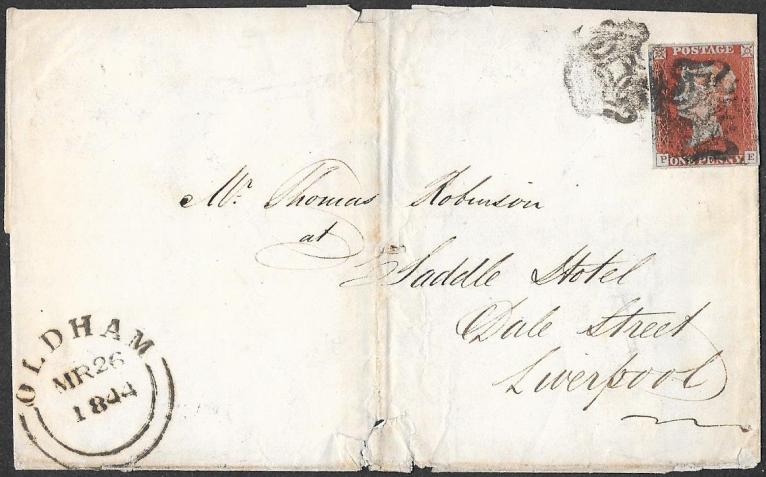 POSTAGE
P ONE PENNY E
Mr. Thomas Robinson
at
Saddle Hotel
Dale Street
Liverpool
OLDHAM
MR26
1844